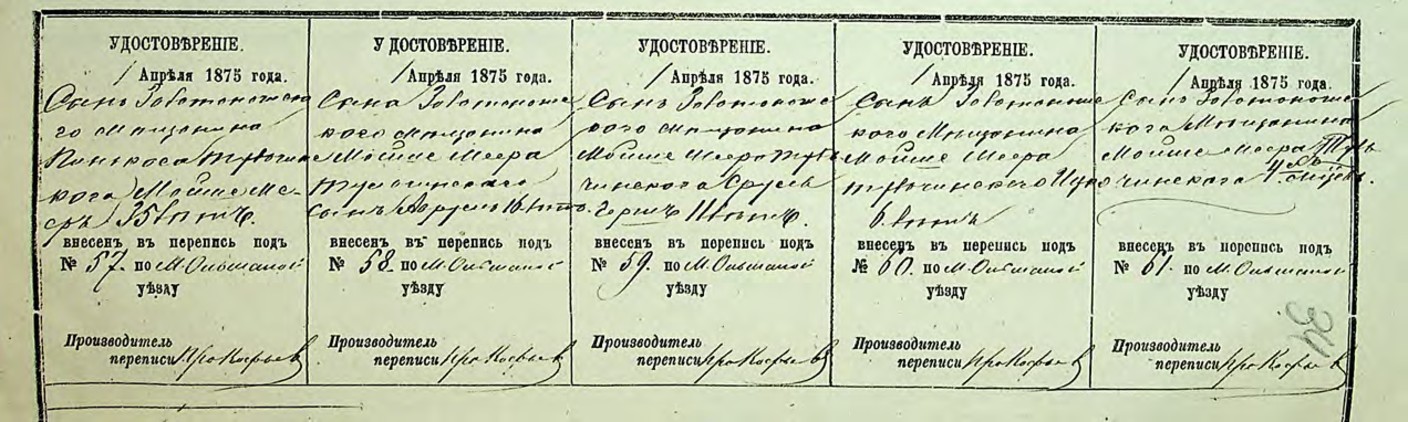 УДОСТОВѢРЕНІЕ.
1 Апрѣля 1875 года.
Сынъ Золотоношска
го мѣщанина
Пинькоса
кого Мойше Ме-
еръ 35 лѣтъ.
внесенъ въ перепись подъ
№ 57. по м. Ольшаной
уѣзду
Производитель
переписи Прокофьевъ
УДОСТОВѢРЕНІЕ.
1 Апрѣля 1875 года.
Сына Золотоноше
кого мѣщанина
Мойше Меера
сынъ 16 лѣтъ.
внесенъ въ перепись подъ
№ 58. по м. Ольшаной
уѣзду
Производитель
переписи Прокофьевъ
УДОСТОВѢРЕНІЕ.
1 Апрѣля 1875 года.
Сынъ Золотоноше
кого мѣщанина
Мойше Меера Туль
чинского Сруль
Гершъ 11 лѣтъ.
внесенъ въ перепись подъ
№ 59. по м. Ольшаной
уѣзду
Производитель
переписи Прокофьевъ
УДОСТОВѢРЕНІЕ.
1 Апрѣля 1875 года.
Сынъ Золотоноше
кого Мѣщанина
Мойше Меера
Тульчинского
6 лѣтъ
внесенъ въ перепись подъ
№ 60. по м. Ольшаной
уѣзду
Производитель
переписи Прокофьевъ
УДОСТОВѢРЕНІЕ.
1 Апрѣля 1875 года.
Сынъ Золотоноше
кого Мѣщанина
Мойше Меера Туль
чинского
внесенъ въ перепись подъ
№ 61. по м. Ольшаной
уѣзду
Производитель
переписи Прокофьевъ